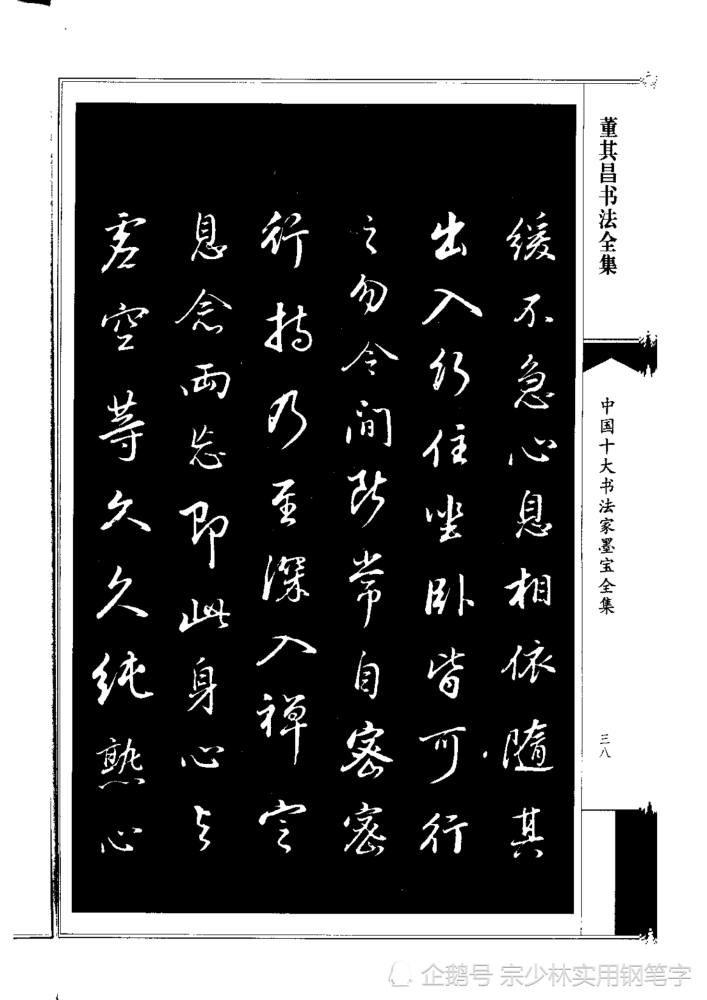 缓不急心息相依随其
出入行住坐卧皆可行
之勿令间断常自密密
行持乃至深入禅定
息念两忘即此身心与
虚空等久久纯熟心
董其昌书法全集
中国十大书法家墨宝全集
三八
企鹅号 宗少林实用钢笔字